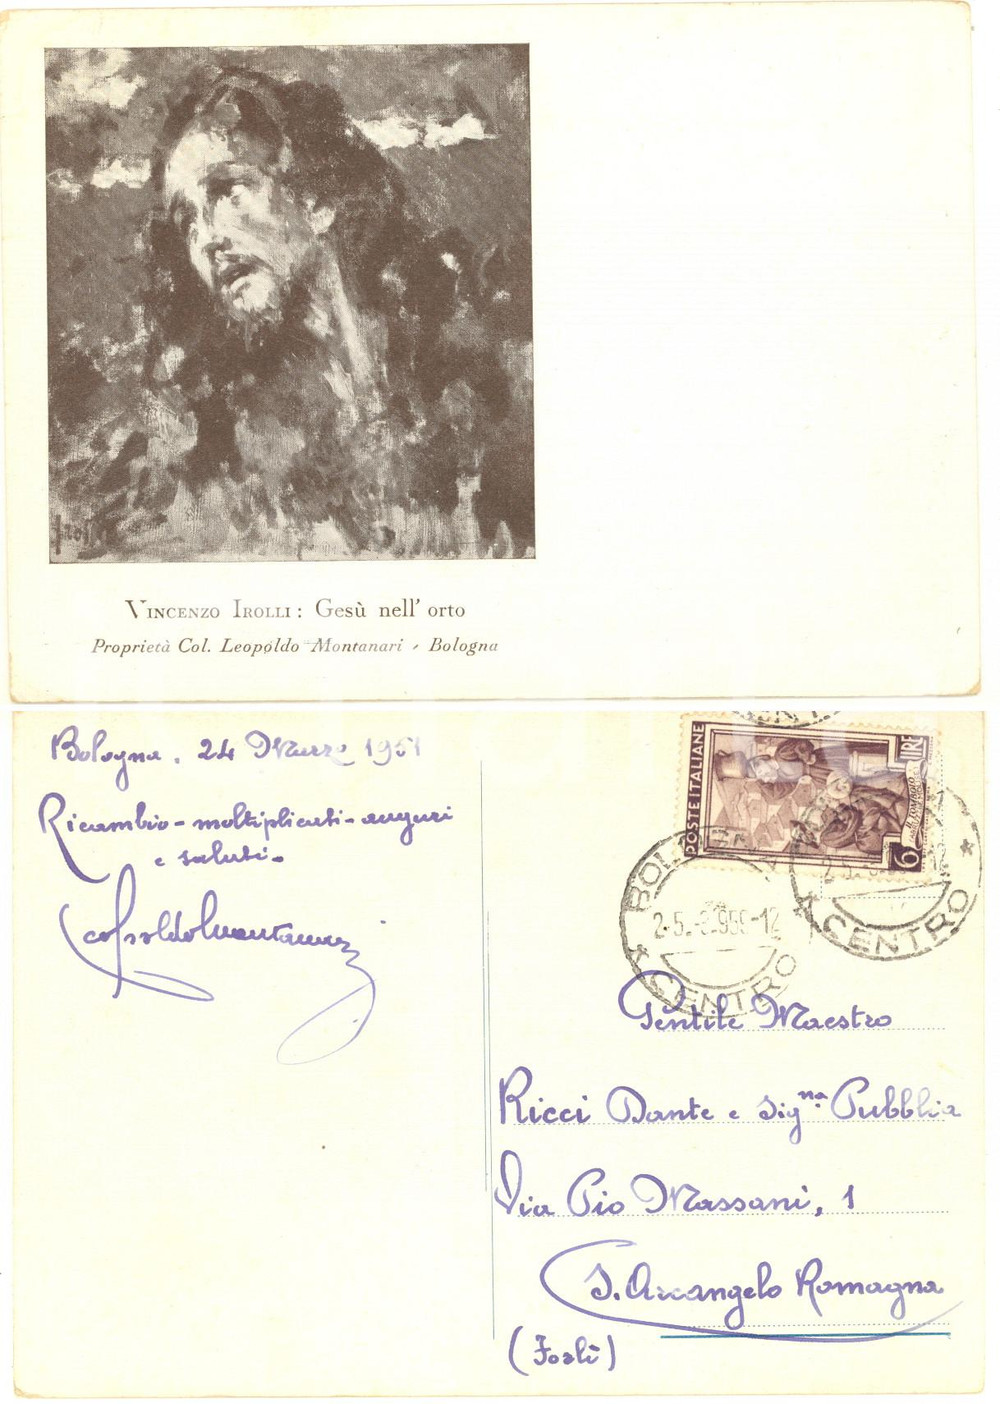 Irolli
VINCENZO IROLLI : Gesù nell' orto
Proprietà Col. Leopoldo Montanari - Bologna
Bologna, 24 Marzo 1951
Ricambio - moltiplicati - auguri
e saluti -
Leopoldo Montanari
POSTE ITALIANE
LIRE
6
BOLOGNA
CENTRO
CENTRO
Gentile Maestro
Ricci Dante e Sig.na Pubblia
Via Pio Massani, 1
S. Arcangelo Romagna
(Forlì)